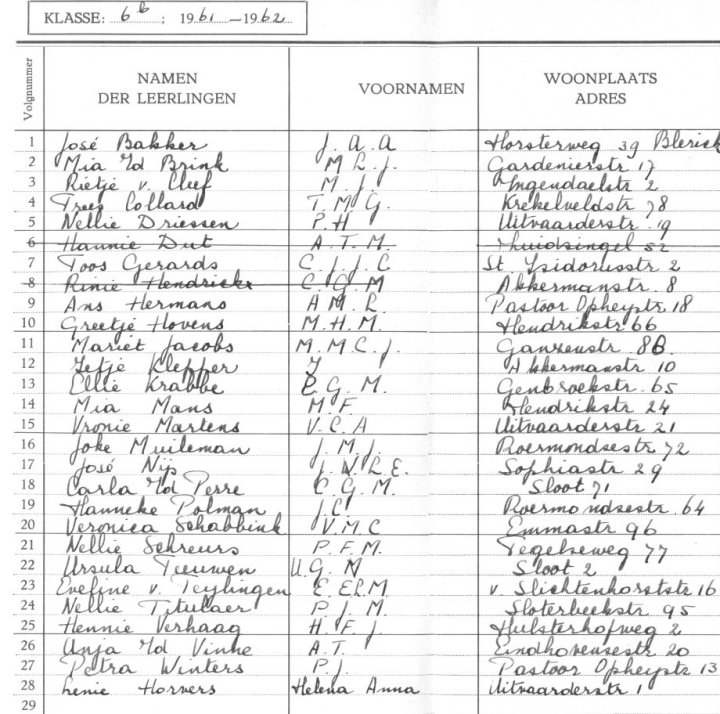 KLASSE: 6b ; 1961-1962
Volgnummer NAMEN DER LEERLINGEN VOORNAMEN WOONPLAATS ADRES
1 José Bakker J. A. A Horsterweg 39 Blerick
2 Mia v/d Brink M L. J. Gardenierstr 17
3 Rietje v. Cleef M. J. Ingendaelstr 2
4 Trees Collard T. M G. Krekelveldstr 78
5 Nellie Driessen P. H Uitvaarderstr. 19
6 Hannie Dut A. T. M. singel 52
7 Toos Gerards C. J. J. C St. Isidorusstr. 2
8 Rinie Hendrickx C. G. M Akkermanstr. 8
9 Ans Hermans A M. L. Pastoor Opheystr 18
10 Greetje Hovens M. H. M. Hendrikstr 66
11 Mariet Jacobs M. M. C. J. Ganzenstr. 86.
12 Jetje Klepper J Akkermanstr 10
13 Ellie Krabbe E. G. M. Genbroekstr. 65
14 Mia Mans M. F. Hendrikstr 24
15 Vronie Martens V. C. A Uitvaarderstr 21
16 Joke Muileman J. M J. Roermondsestr 72
17 José Nijs J. W. L E. Sophiastr 29
18 Carla v/d Perre C. G. M. Sloot 71
19 Hanneke Polman J. C. Roermondsestr. 64
20 Veronica Schabbink V. M C Emmastr 96
21 Nellie Schreurs P. F. M. Tegelseweg 77
22 Ursula Teeuwen U. G. M Sloot 2
23 Eveline v. Teylingen E. E L. M v. Slichtenhorststr 16
24 Nellie Titulaer P. J. M. Sloterbeekstr 95
25 Hennie Verhaag H. F. J. Hulsterhofweg 2
26 Anja v/d Vinne A. T. Eindhovensestr 20
27 Petra Winters P. J. Pastoor Opheystr. 13
28 Lenie Horvers Helena Anna Uitvaarderstr 1
29